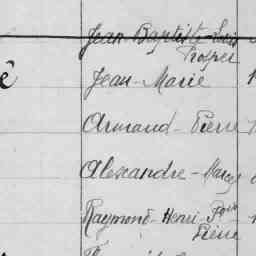 Jean Baptiste Louis
Prosper
Jean-Marie
Armand-Pierre
Alexandre-Marcel
Raymond-Henri-
Pierre